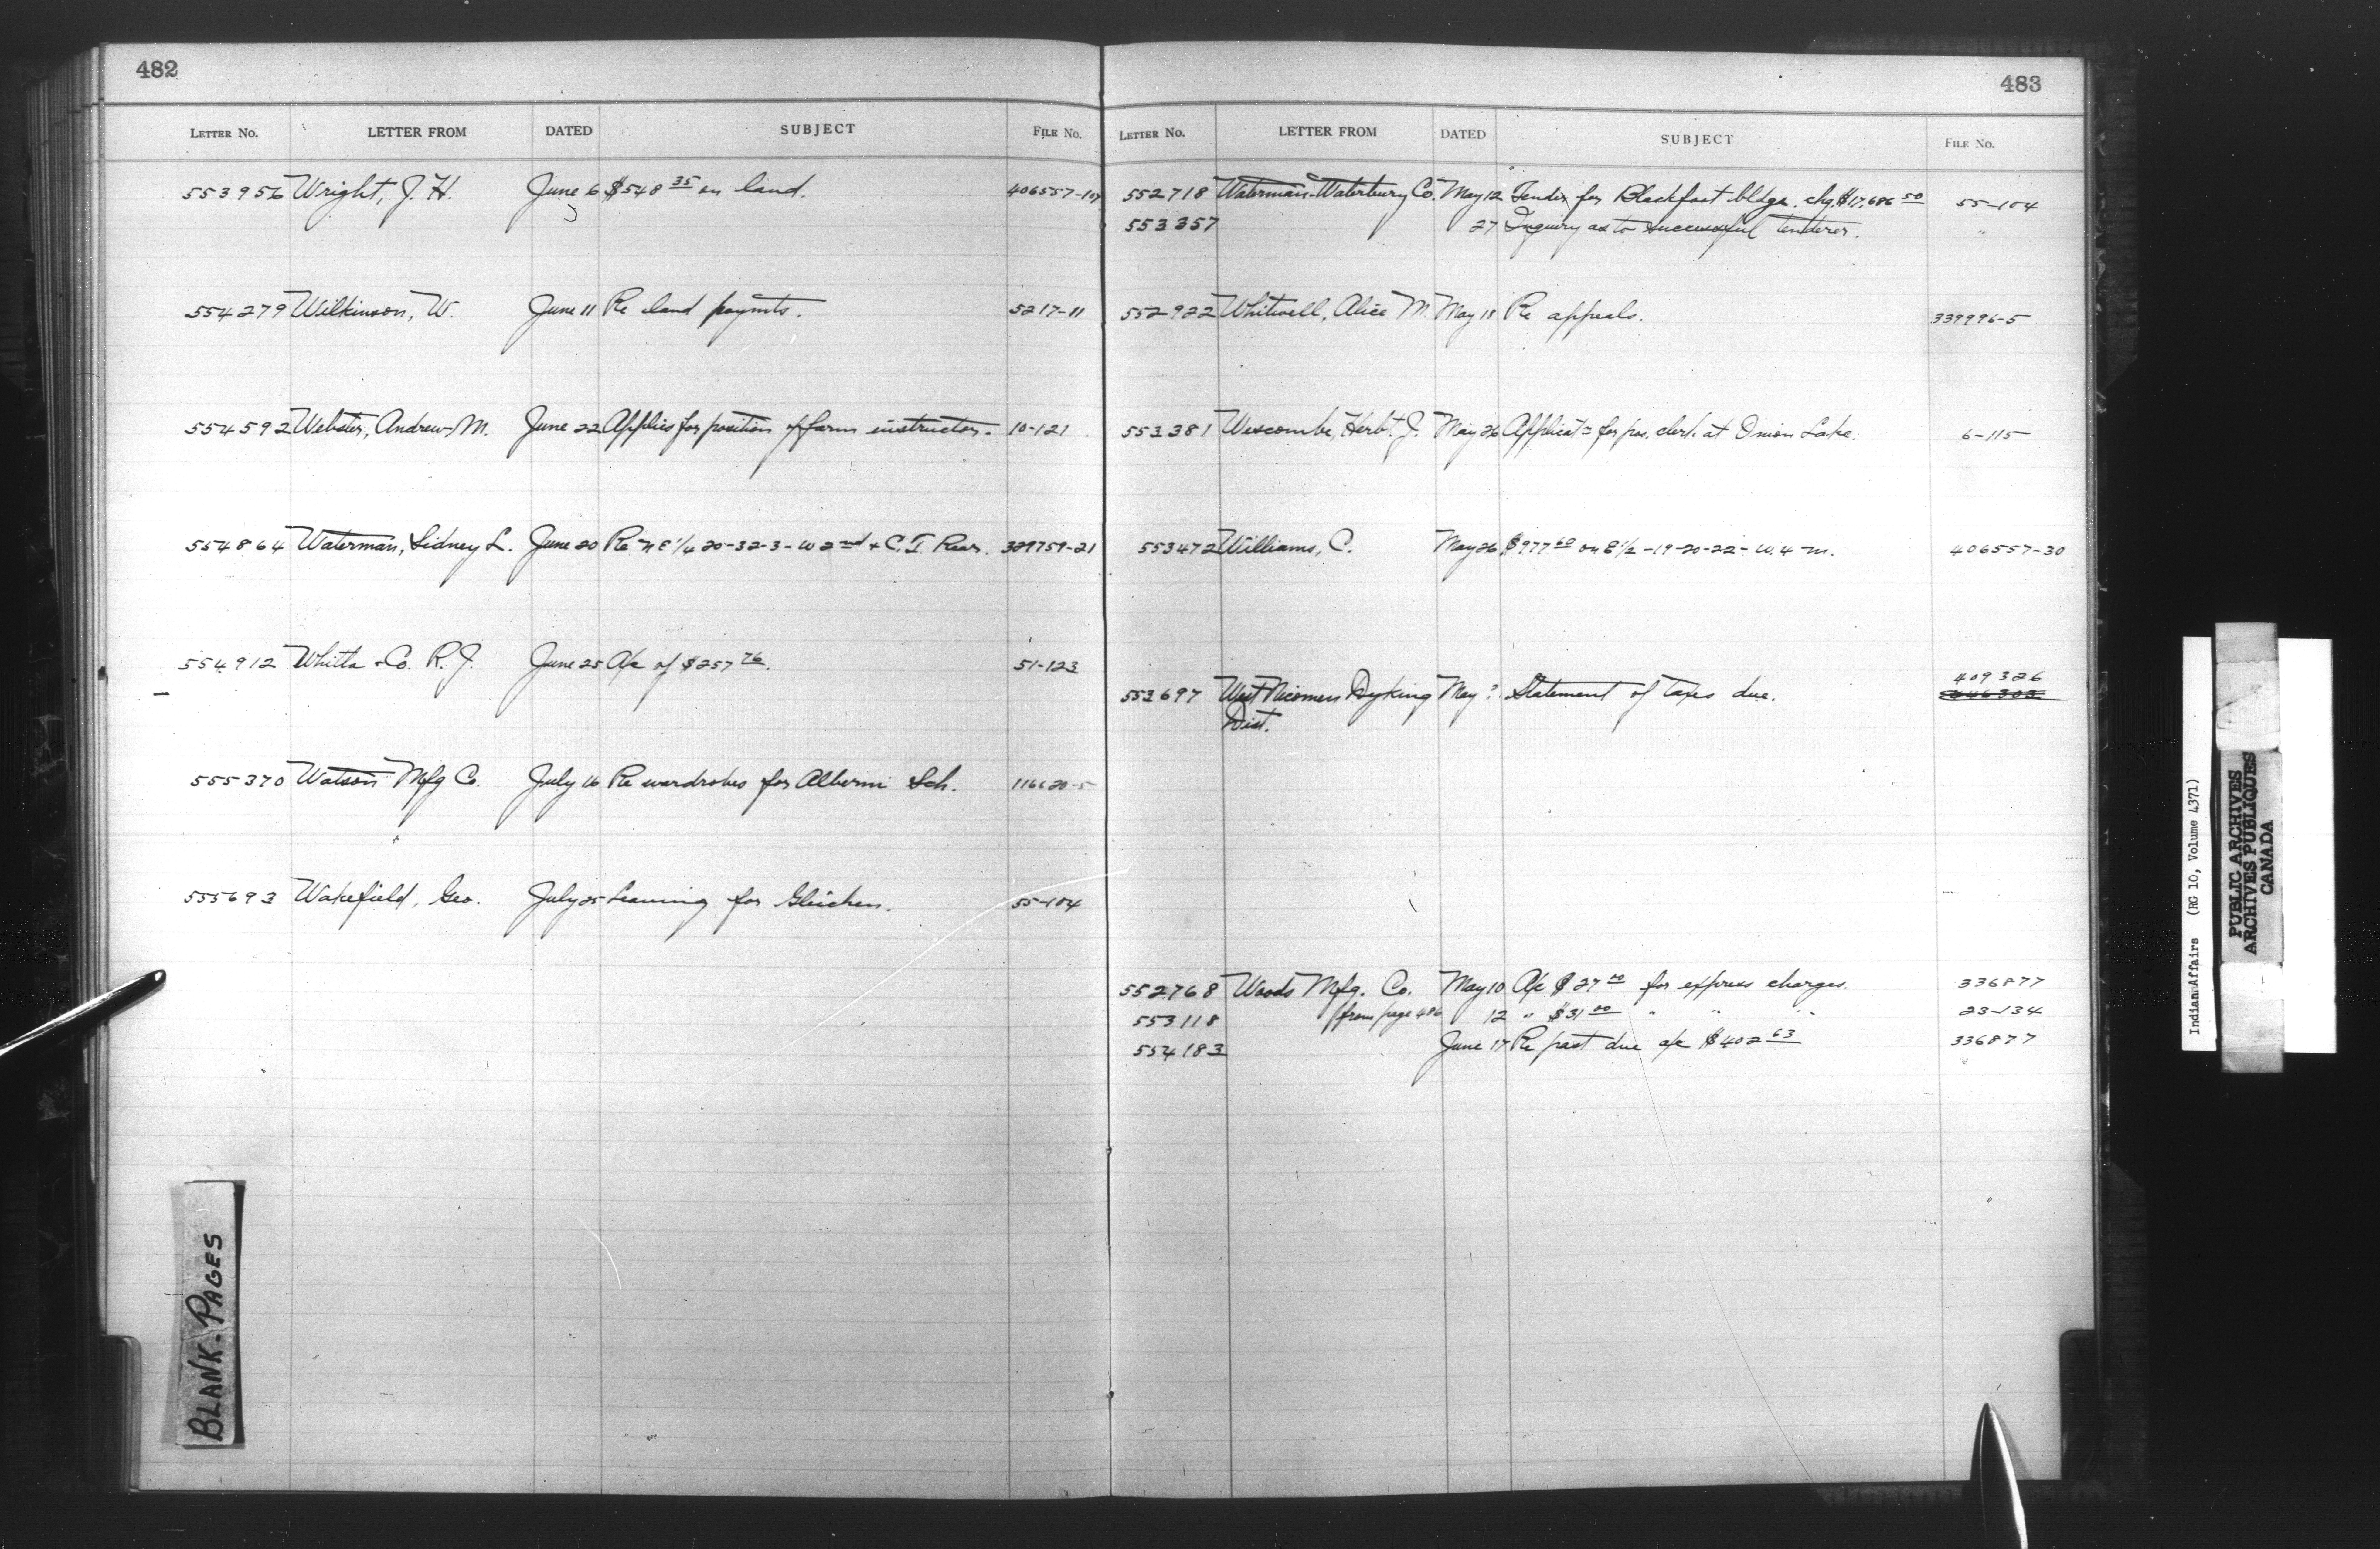 482
LETTER No. LETTER FROM DATED SUBJECT FILE No.
553956 Wright, J. H. June 6 $548 35 on land. 406557-107
554279 Wilkinson, W. June 11 Re land paymts. 5217-11
554592 Webster, Andrew M. June 22 Applies for position of farm instructor. 10-121
554864 Waterman, Sidney L. June 20 Re N E 1/4 20-32-3-W 2nd & C. I. Rear. 329759-21
554912 Whitla & Co. R. J. June 25 A/c of $257 76. 51-123
555370 Watson Mfg Co. July 16 Re wardrobes for Alberni Sch. 116620-5
555693 Wakefield, Geo. July 25 Leaving for Gleichen. 55-104
BLANK-PAGES
483
LETTER No. LETTER FROM DATED SUBJECT FILE No.
552718 Waterman-Waterbury Co. May 12 Tender for Blackfoot bldgs. chg. $17,686 50 55-104
553357 27 Inquiry as to successful tenderer. "
552922 Whitwell, Alice M. May 18 Re appeals. 339996-5
553381 Wescombe, Herbt. J. May 26 Applicatn for pos. clerk at Onion Lake. 6-115
553472 Williams, C. May 26 $977 60 on E 1/2-19-20-22-W. 4 M. 406557-30
409326
553697 West Nicomen Dyking May ? Statement of taxes due.
Dist.
552768 Woods Mfg. Co. May 10 A/c $27 00 for express charges. 336877
553118 from page 486 12 " $31 00 " " " 23-134
554183 June 17 Re past due a/c $402 63 336877
Indian Affairs (RG 10, Volume 4371)
PUBLIC ARCHIVES
ARCHIVES PUBLIQUES
CANADA